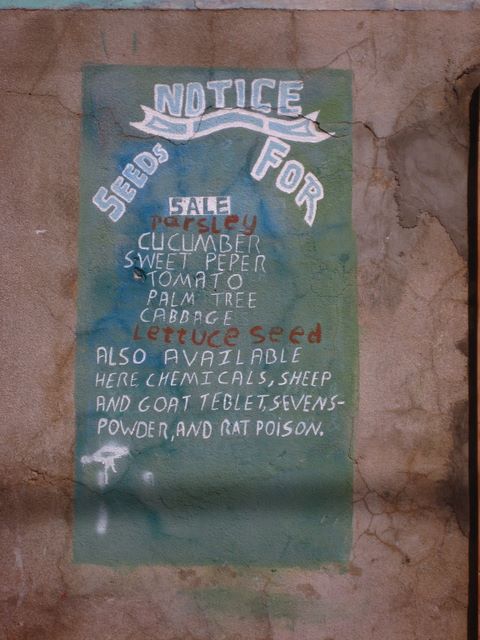 NOTICE
SEEDS FOR
SALE
Parsley
CUCUMBER
SWEET PEPER
TOMATO
PALM TREE
CABBAGE
Lettuce Seed
ALSO AVAILABLE
HERE CHEMICALS, SHEEP
AND GOAT TEBLET, SEVENS-
POWDER, AND RAT POISON.